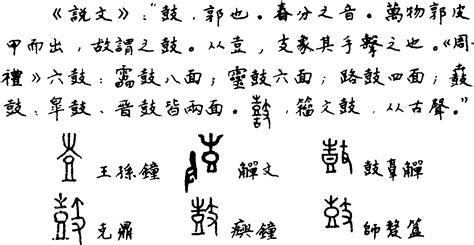 《說文》:"鼓,郭也。春分之音。萬物郭皮
甲而出,故謂之鼓。从壴,支象其手擊之也。《周
禮》六鼓:靁鼓八面;靈鼓六面;路鼓四面;鼖
鼓、皐鼓、晉鼓皆兩面。𪔐,籀文鼓,从古聲。"
王孫鐘 觶文 鼓𦎫觶
克鼎 𤼈鐘 師嫠簋